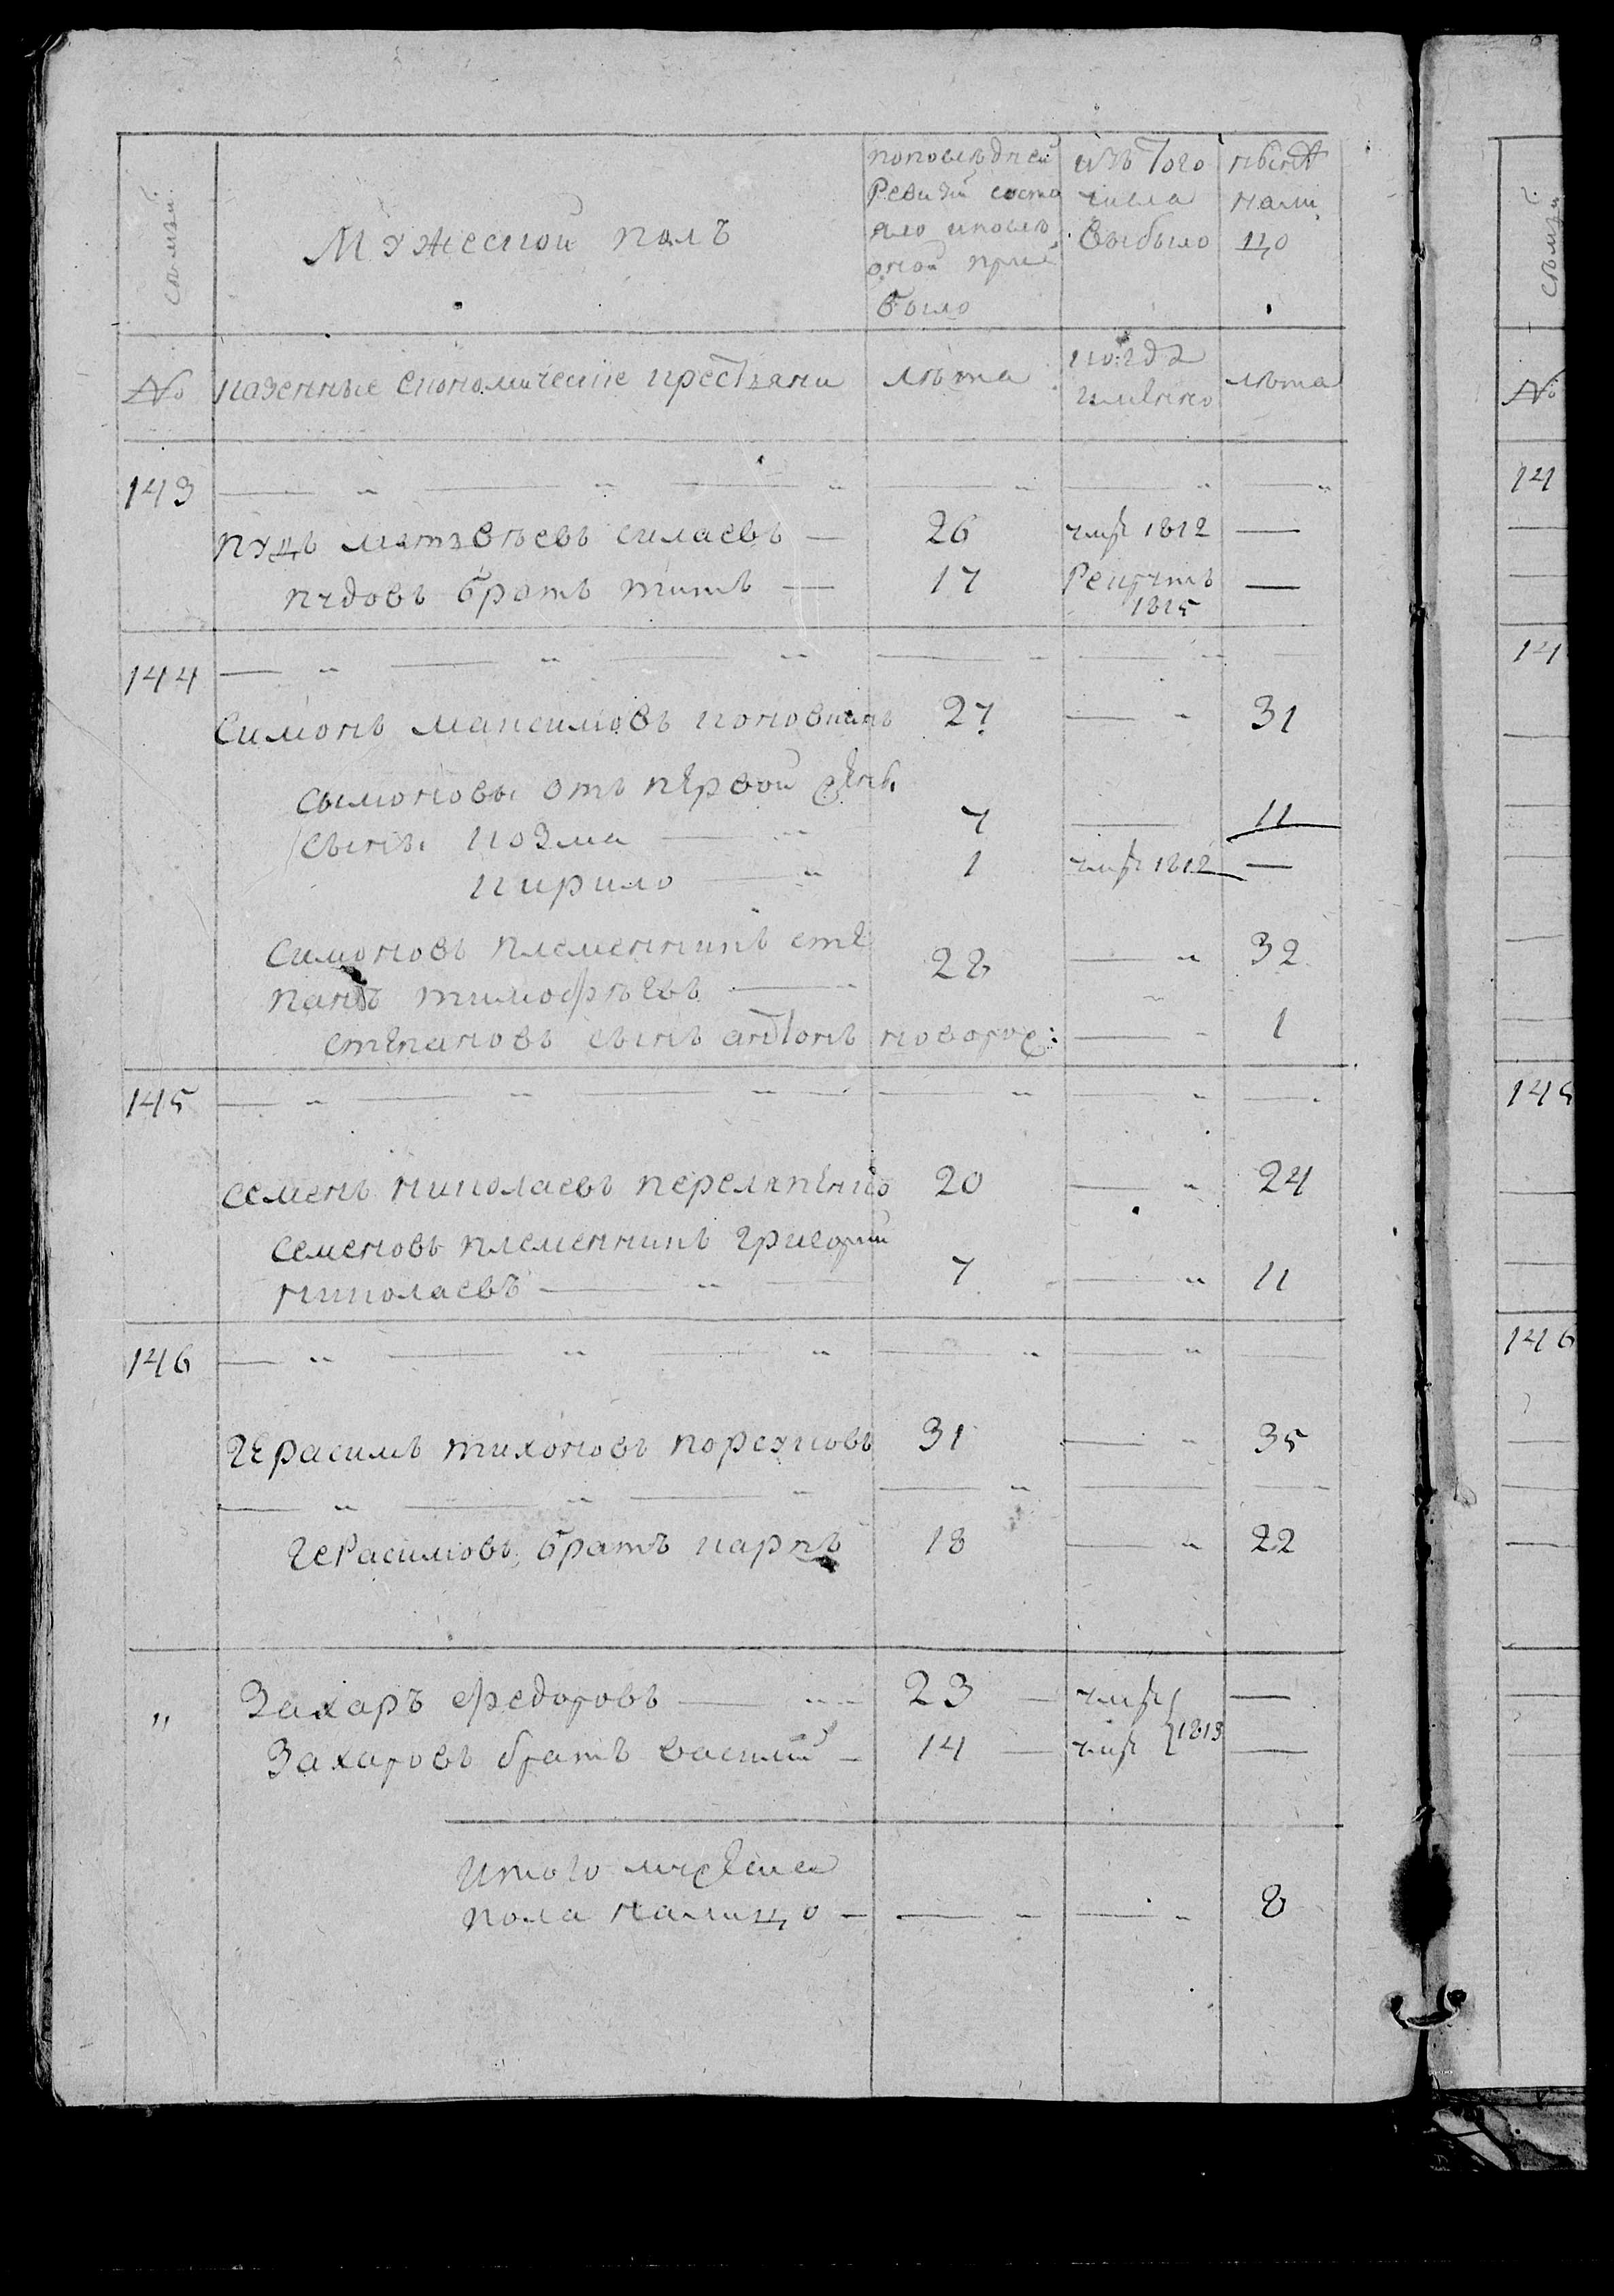 семьи
Мужескои полъ
попоследней
Ревизiи состо
яло ипосле
оной при
было
изъ Того
числа
выбыло
ныне
нали
цо
№
казенные економическiе крестьяни
лѣта
когда
имянно
лѣта
143
пудъ матвѣевъ силаевъ — 26 умр 1812 —
пудовъ братъ титъ — 17 Рекрутъ 1815 —
144
Симонъ максимовъ 27 — 31
сымоновы отъ первой жены
сыны козма — 7 — 11
кирило — 1 умр 1812 —
Симоновъ племенникъ сте
панъ тимофѣевъ — 28 — 32
степановъ сынъ антонъ новорож: — 1
145
Семенъ николаевъ переляпкинъ 20 — 24
Семеновъ племенникъ григорий
николаевъ — 7 — 11
146
Герасимъ тихоновъ порсуковъ 31 — 35
Герасимовъ братъ карпъ 18 — 22
" Захаръ федоровъ — 23 — умр —
Захаровъ братъ василий — 14 — умр 1813 —
Итого мужеска
пола налицо — — — 8
семьи
№
14
14
145
146